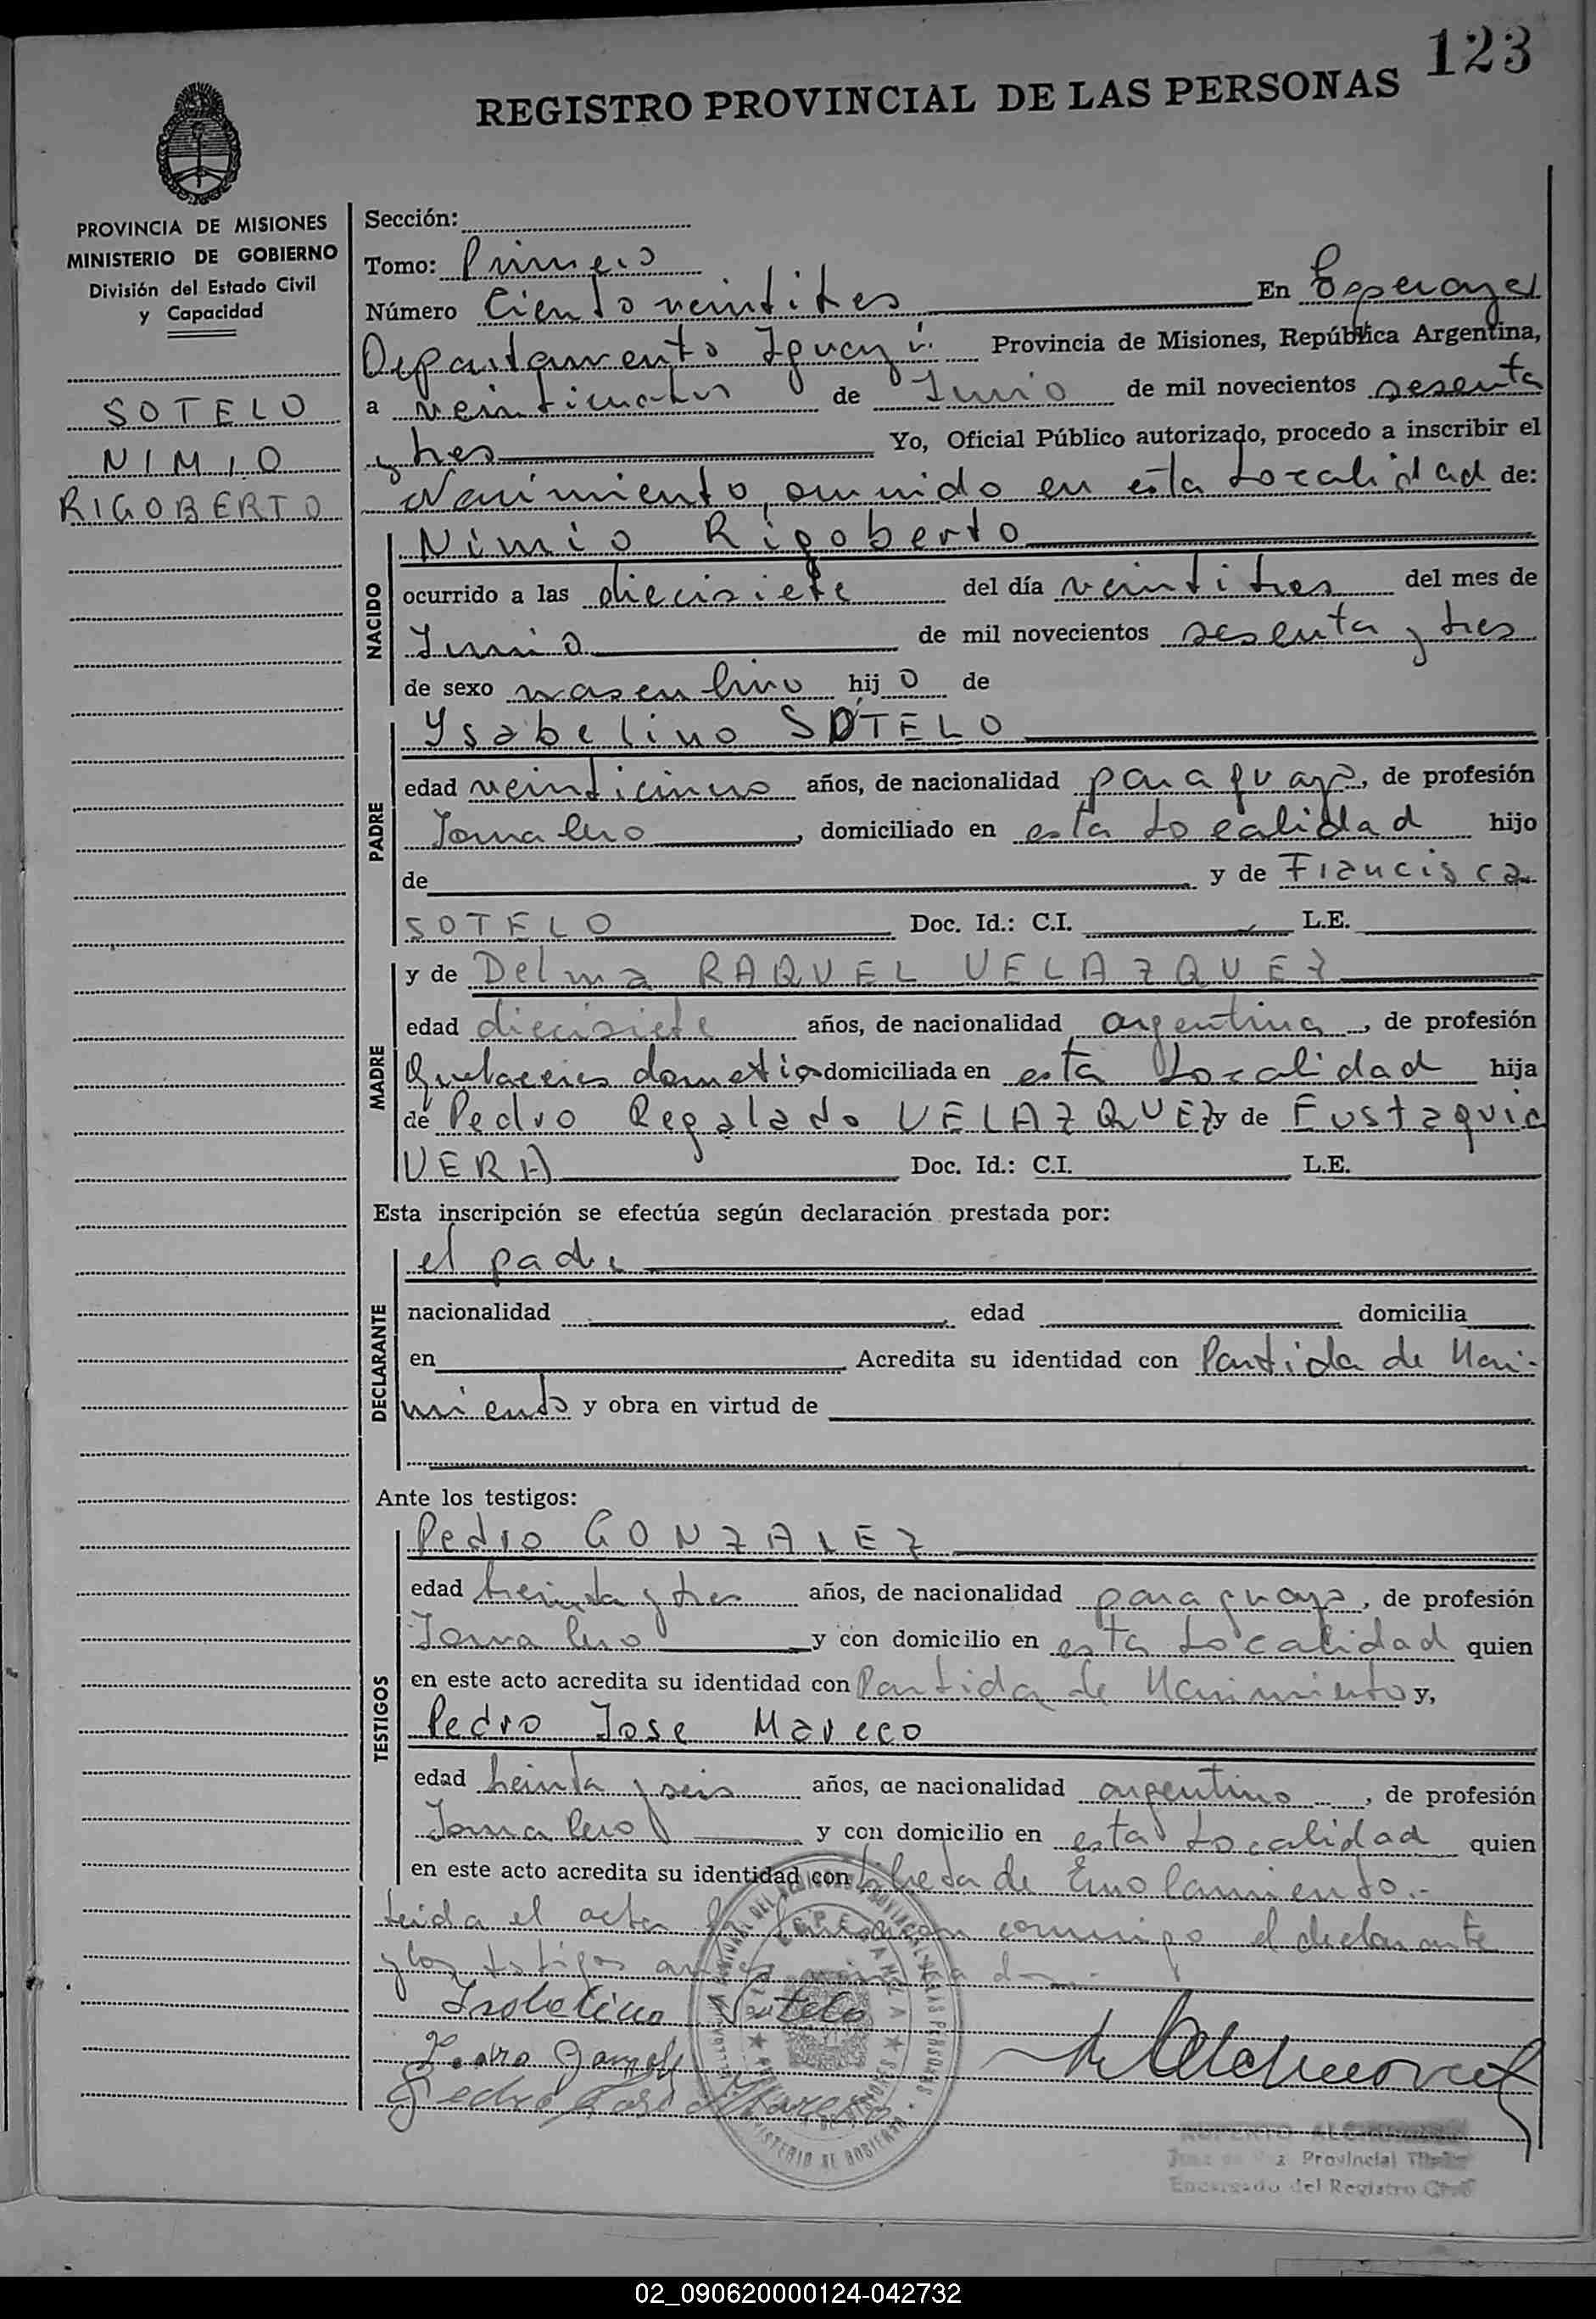 123
REGISTRO PROVINCIAL DE LAS PERSONAS
PROVINCIA DE MISIONES
MINISTERIO DE GOBIERNO
División del Estado Civil
y Capacidad
SOTELO
NIMIO
RIGOBERTO
Sección:
Tomo: Primero
Número Ciento veintitres En Esperanza
Departamento Iguazú Provincia de Misiones, República Argentina,
a veinticuatro de Junio de mil novecientos sesenta
y tres Yo, Oficial Público autorizado, procedo a inscribir el
Nacimiento, ocurrido en esta Localidad de:
NACIDO
Nimio Rigoberto
ocurrido a las diecisiete del día veintitres del mes de
Junio de mil novecientos sesenta y tres
de sexo masculino hijo de
PADRE
Ysabelino SOTELO
edad veinticinco años, de nacionalidad paraguaya, de profesión
Jornalero, domiciliado en esta Localidad hijo
de y de Francisca
SOTELO Doc. Id.: C.I. L.E.
MADRE
y de Delma RAQUEL VELAZQUEZ
edad diecisiete años, de nacionalidad argentina, de profesión
Quehaceres domestico domiciliada en esta Localidad hija
de Pedro Regalado VELAZQUEZ y de Eustaquia
VERA Doc. Id.: C.I. L.E.
Esta inscripción se efectúa según declaración prestada por:
DECLARANTE
el padre
nacionalidad edad domicilia
en Acredita su identidad con Partida de Naci-
miento y obra en virtud de
Ante los testigos:
TESTIGOS
Pedro GONZALEZ
edad treinta y tres años, de nacionalidad paraguaya, de profesión
Jornalero y con domicilio en esta Localidad quien
en este acto acredita su identidad con Partida de Nacimiento y,
Pedro Jose Mareco
edad treinta y seis años, de nacionalidad argentino, de profesión
Jornalero y con domicilio en esta Localidad quien
en este acto acredita su identidad con Libreta de Enrolamiento.-
Leida el acta la firmaron conmigo el declarante
y los testigos
Isabelino Sotelo
Pedro Jose Mareco
RUPERTO
Provincial Titular
Encargado del Registro Civil
02_090620000124-042732